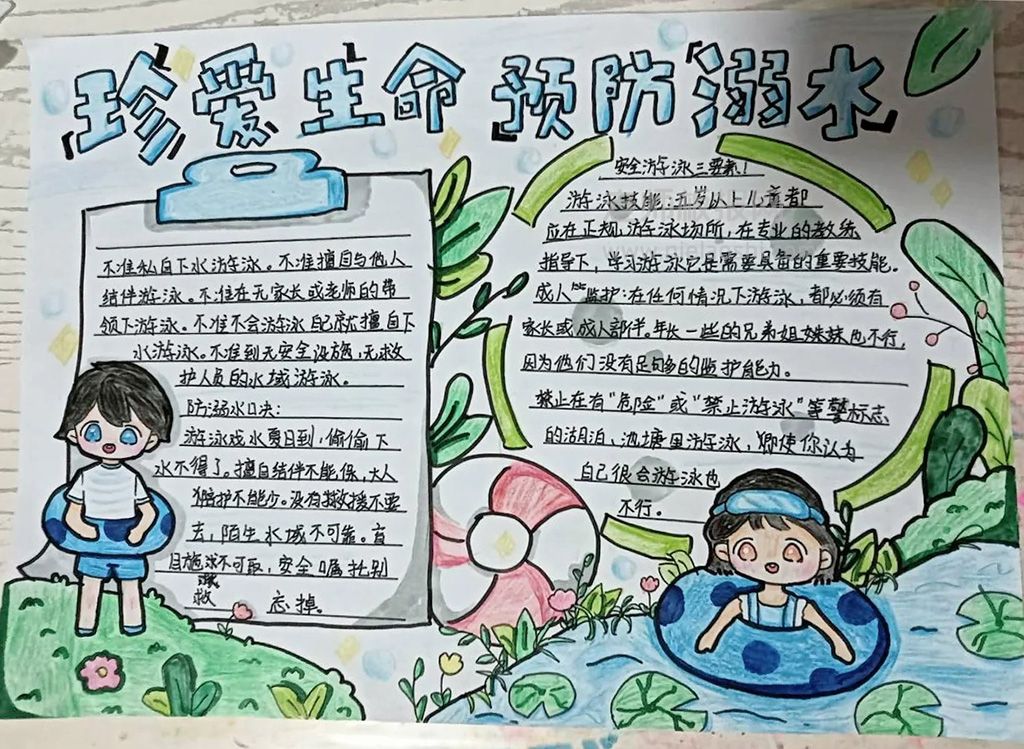 珍爱生命 预防溺水
不准私自下水游泳。不准擅自与他人
结伴游泳。不准在无家长或老师的带
领下游泳。不准不会游泳自己就擅自下
水游泳。不准到无安全设施,无救
护人员的水域游泳。
防溺水口决:
游泳戏水夏日到,偷偷下
水不得了。擅自结伴不能保,大人
陪护不能少。没有救援不要
去,陌生水域不可靠。盲
目施救不可取,安全嘱托别
救
忘掉。
安全游泳三要素!
游泳技能:五岁以上儿童都
应在正规游泳场所,在专业的教练
指导下,学习游泳它是需要具备的重要技能。
成人"监护:在任何情况下游泳,都必须有
家长或成人部伴。年长一些的兄弟姐妹妹也不行,
因为他们没有足够多的监护能力。
禁止在有"危险"或"禁止游泳"等警标志
的湖泊,池塘里游泳,即使你认为
自己很会游泳也
不行。